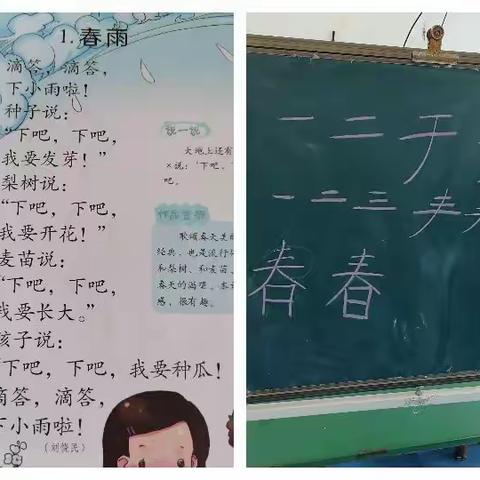 1.春雨
滴答，滴答，
下小雨啦！
种子说：
“下吧，下吧，
我要发芽！”
梨树说：
“下吧，下吧，
我要开花！”
麦苗说：
“下吧，下吧，
我要长大。”
孩子说：
“下吧，下吧，我要种瓜！
滴答，滴答，
下小雨啦！
（刘饶民）
说一说
大地上还有
×说：‘下吧，
吧。
作品赏析
歌颂春天美
经典，也是流行
和梨树、和麦苗、
春天的渴望。本
感，很有趣。
一 二 于
一 二 三 丰
春 春